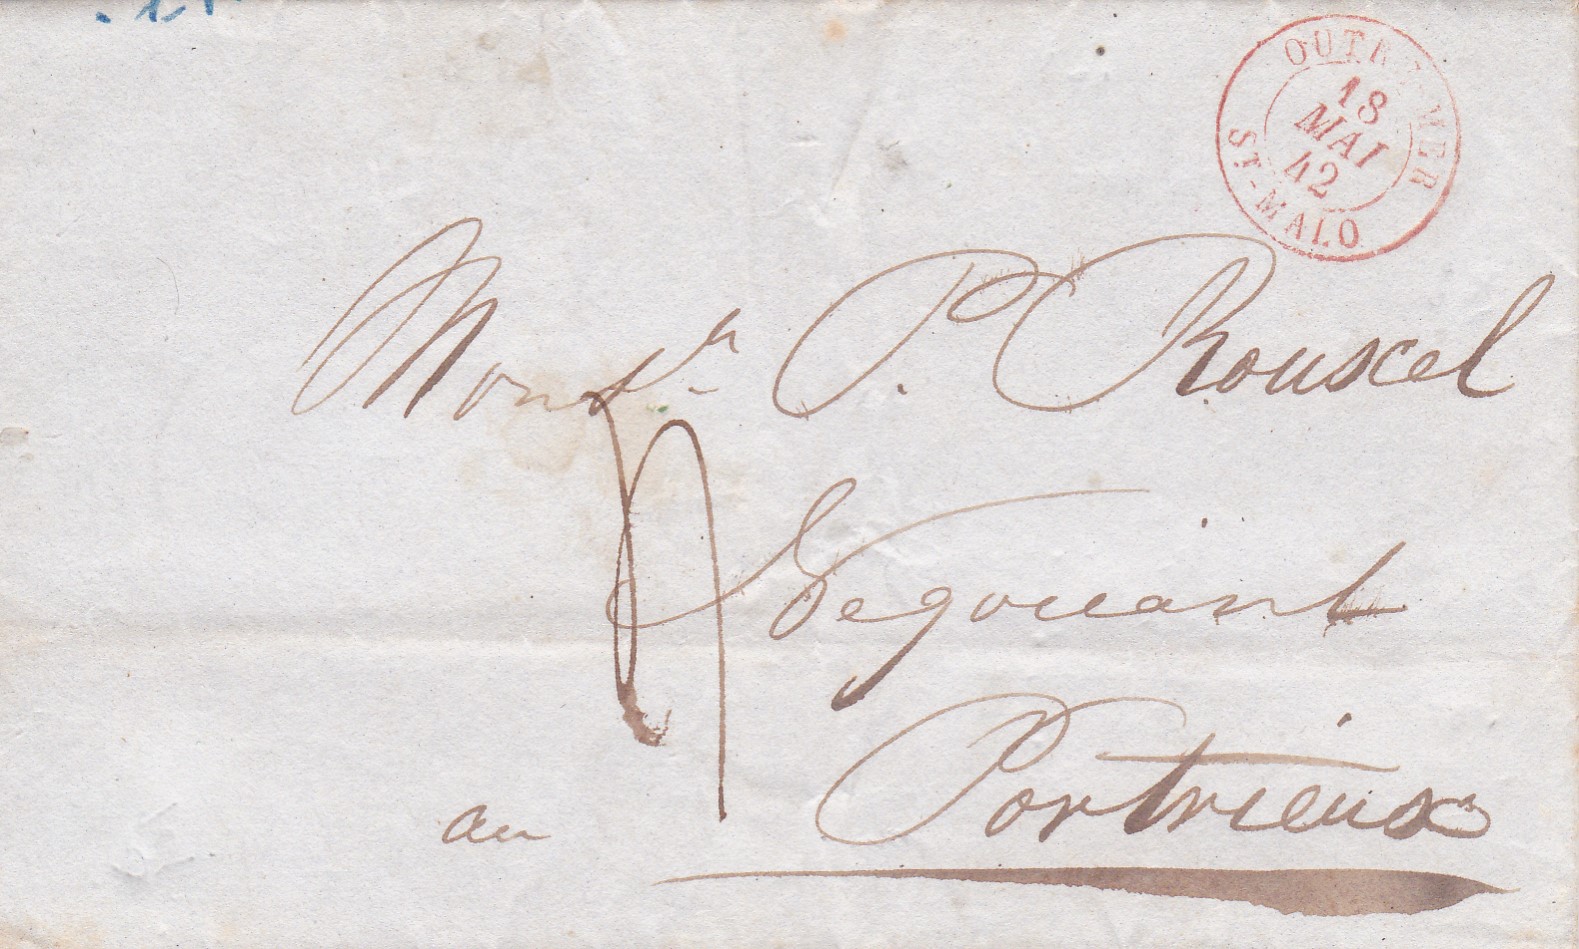 OUTRE-MER
18
MAI
42
ST-MALO
Monsr P. Rouxel
Negociant
au Portrieux